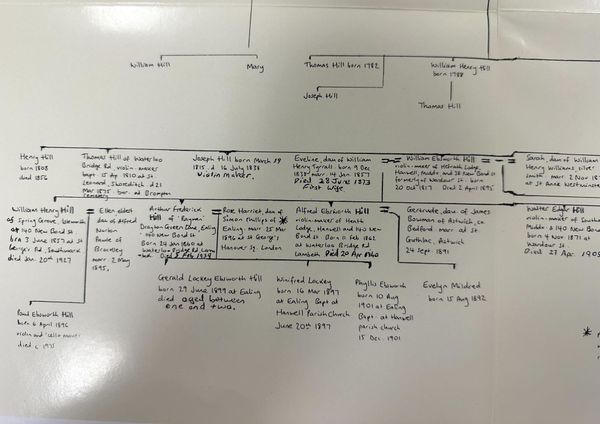 William Hill
Mary
Thomas Hill born 1782
Joseph Hill
William Henry Hill
born 1788
Thomas Hill
Henry Hill
born 1808
died 1856
Thomas Hill of Waterloo
Bridge Rd violin-maker
bapt 15 Ap 1810 at St.
Leonard, Shoreditch d 21
Mar 1875 bur. at Brompton
Cemetery
Joseph Hill born March 19
1815 d 16 July 1838
Violin maker.
Eveline, dau of William
Henry Tyrrall born 9 Dec
marr 14 Jan 1857
Died 28 June 1873
First wife
William Ebsworth Hill
violin-maker of Heath Lodge,
Hanwell, Middx and 38 New Bond St
formerly of Wardour St. born
20 Oct 1817 Died 2 April 1895
Sarah, dau of William
Henry Williams, silver
smith marr 2 Nov
at St Anne Westminster
William Henry Hill
of Spring Grove, Isleworth
at 140 New Bond St
born 3 June 1857 at St
George's Rd. Southwark
died Jan. 20th 1927
Ellen eldest
dau of Alfred
of
Brockley
marr 2 May
1895,
Arthur Frederick
Hill of
Drayton Green Lane, Ealing
of New Bond St
Born 24 Jan 1860 at
Waterloo Bridge Rd Lam-
Died 5 Feb 1939
Rose Harriet, dau of
Simon Phillips of *
Ealing marr 25 Mar
1896 at St George's
Hanover Sq. London.
Alfred Ebsworth Hill
violin-maker of Heath
Lodge, Hanwell and 140 New
Bond St Born 11 Feb 1862
at Waterloo Bridge Rd
Lambeth Died 20 Apr 1940
Gertrude, dau of James
Bowman of Astwick, co
Bedford marr at St.
Guthlac, Astwick
24 Sept 1891
Walter Edgar Hill
violin-maker of
Middx & 140 New Bond
born 4 Nov 1871 at
Wardour St
Died 27 Apr. 1905
Paul Ebsworth Hill
born 6 April 1896
violin and 'cello maker
died c 1975
Gerald Lockey Ebsworth Hill
born 29 June 1899 at Ealing
died aged between
one and two.
Winifred Lockey
born 16 Mar 1897
at Ealing Bapt at
Hanwell Parish Church
June 20th 1897
Phyllis Ebsworth
born 10 Aug
1901 at Ealing
Bapt. at Hanwell
parish church
15 Dec. 1901
Evelyn Mildred
born 15 Aug 1892
*